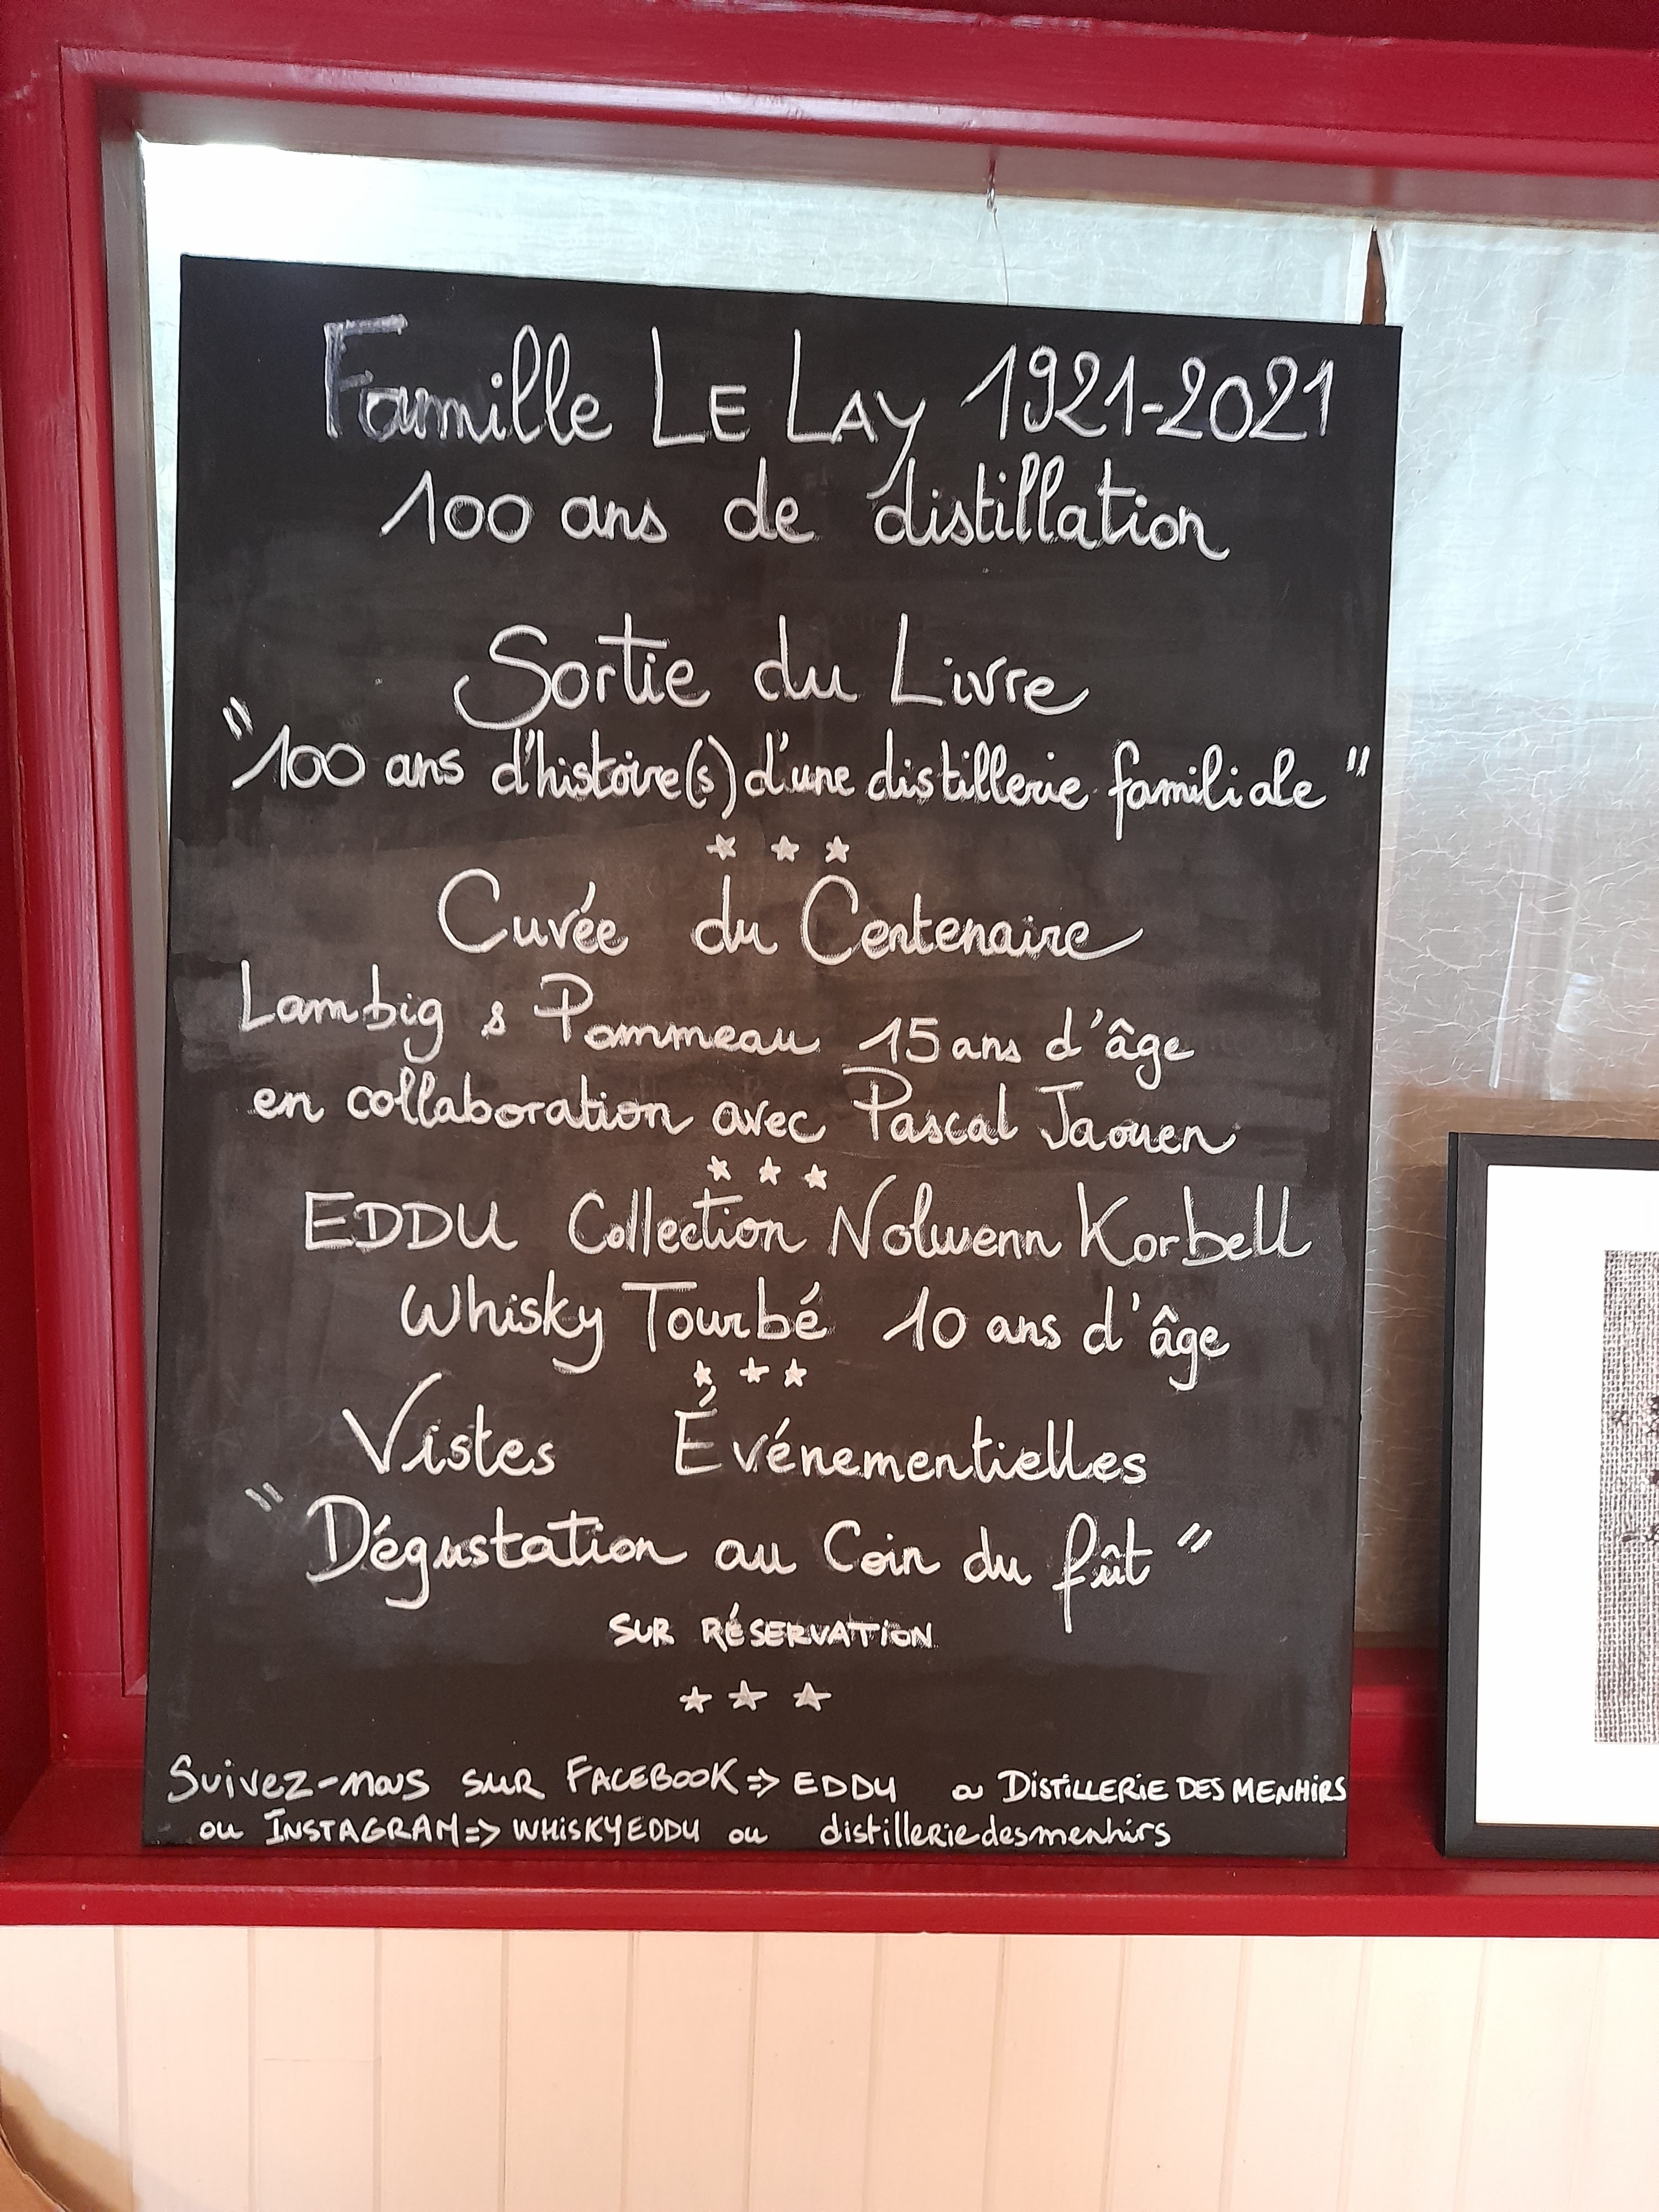 Famille LE LAY 1921-2021
100 ans de distillation
Sortie du Livre
"100 ans d'histoire(s) d'une distillerie familiale"
* * *
Cuvée du Centenaire
Lambig & Pommeau 15 ans d'âge
en collaboration avec Pascal Jaouen
* * *
EDDU Collection Nolwenn Korbell
Whisky Tourbé 10 ans d'âge
* * *
Vistes Événementielles
"Dégustation au Coin du fût"
SUR RÉSERVATION
* * *
Suivez-nous sur FACEBOOK => EDDU ou DISTILLERIE DES MENHIRS
ou INSTAGRAM => WHISKYEDDU ou distilleriedesmenhirs